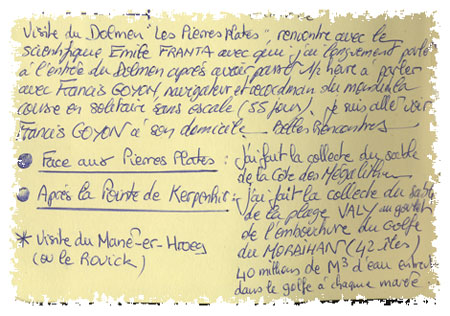 Visite du Dolmen "Les Pierres Plates", rencontre avec le
scientifique Emile FRANTA avec qui j'ai longuement parlé
à l'entrée du Dolmen après avoir passé 1/2 heure à parler
avec Francis GOYON, navigateur et recordman du monde de la
course en solitaire sans escale (55 jours). je suis allé voir
Francis GOYON à son domicile. Belles Rencontres
Face aux Pierres Plates : J'ai fait la collecte du sable
de la Côte des Mégalithes
Après la Pointe de Kerpenhir : j'ai fait la collecte du sable
de la plage VALY au goulet
de l'embouchure du Golfe
du MORBIHAN (42 îles)
* Visite du Mané-er-Hroeg
(ou le Rovick)
40 millions de M³ d'eau entrent
dans le golfe à chaque marée